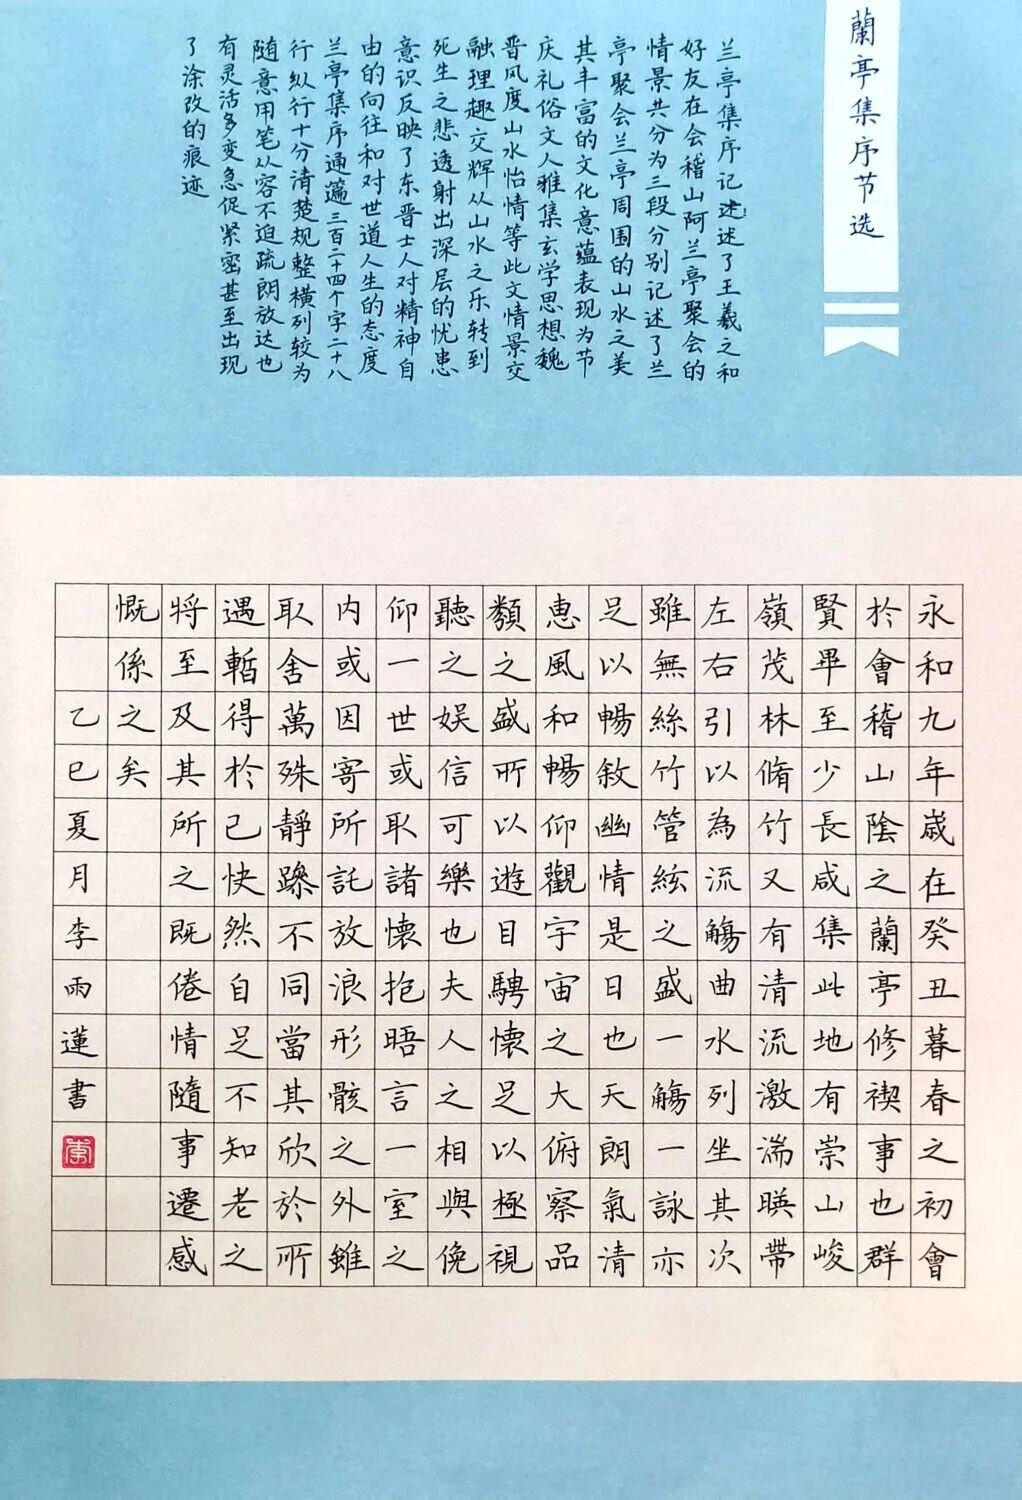 蘭亭集序节选
兰亭集序记述述了王羲之和
好友在会稽山阿兰亭聚会的
情景共分为三段分别记述了兰
亭聚会兰亭周围的山水之美
其丰富的文化意蕴表现为节
庆礼俗文人雅集玄学思想魏
晋风度山水怡情等此文情景交
融理趣交辉从山水之乐转到
死生之悲透射出深层的忧患
意识反映了东晋士人对精神自
由的向往和对世道人生的态度
兰亭集序通篇三百二十四个字二十八
行纵行十分清楚规整横列较为
随意用笔从容不迫疏朗放达也
有灵活多变急促紧密甚至出现
了涂改的痕迹
永和九年歲在癸丑暮春之初會
於會稽山陰之蘭亭修禊事也群
賢畢至少長咸集此地有崇山峻
嶺茂林脩竹又有清流激湍暎帶
左右引以為流觴曲水列坐其次
雖無絲竹管絃之盛一觴一詠亦
足以暢敘幽情是日也天朗氣清
惠風和暢仰觀宇宙之大俯察品
類之盛所以遊目騁懷足以極視
聽之娱信可樂也夫人之相與俛
仰一世或取諸懷抱晤言一室之
内或因寄所託放浪形骸之外雖
取舍萬殊靜躁不同當其欣於所
遇暫得於己快然自足不知老之
將至及其所之既倦情隨事遷感
慨係之矣
乙巳夏月李雨蓮書
李